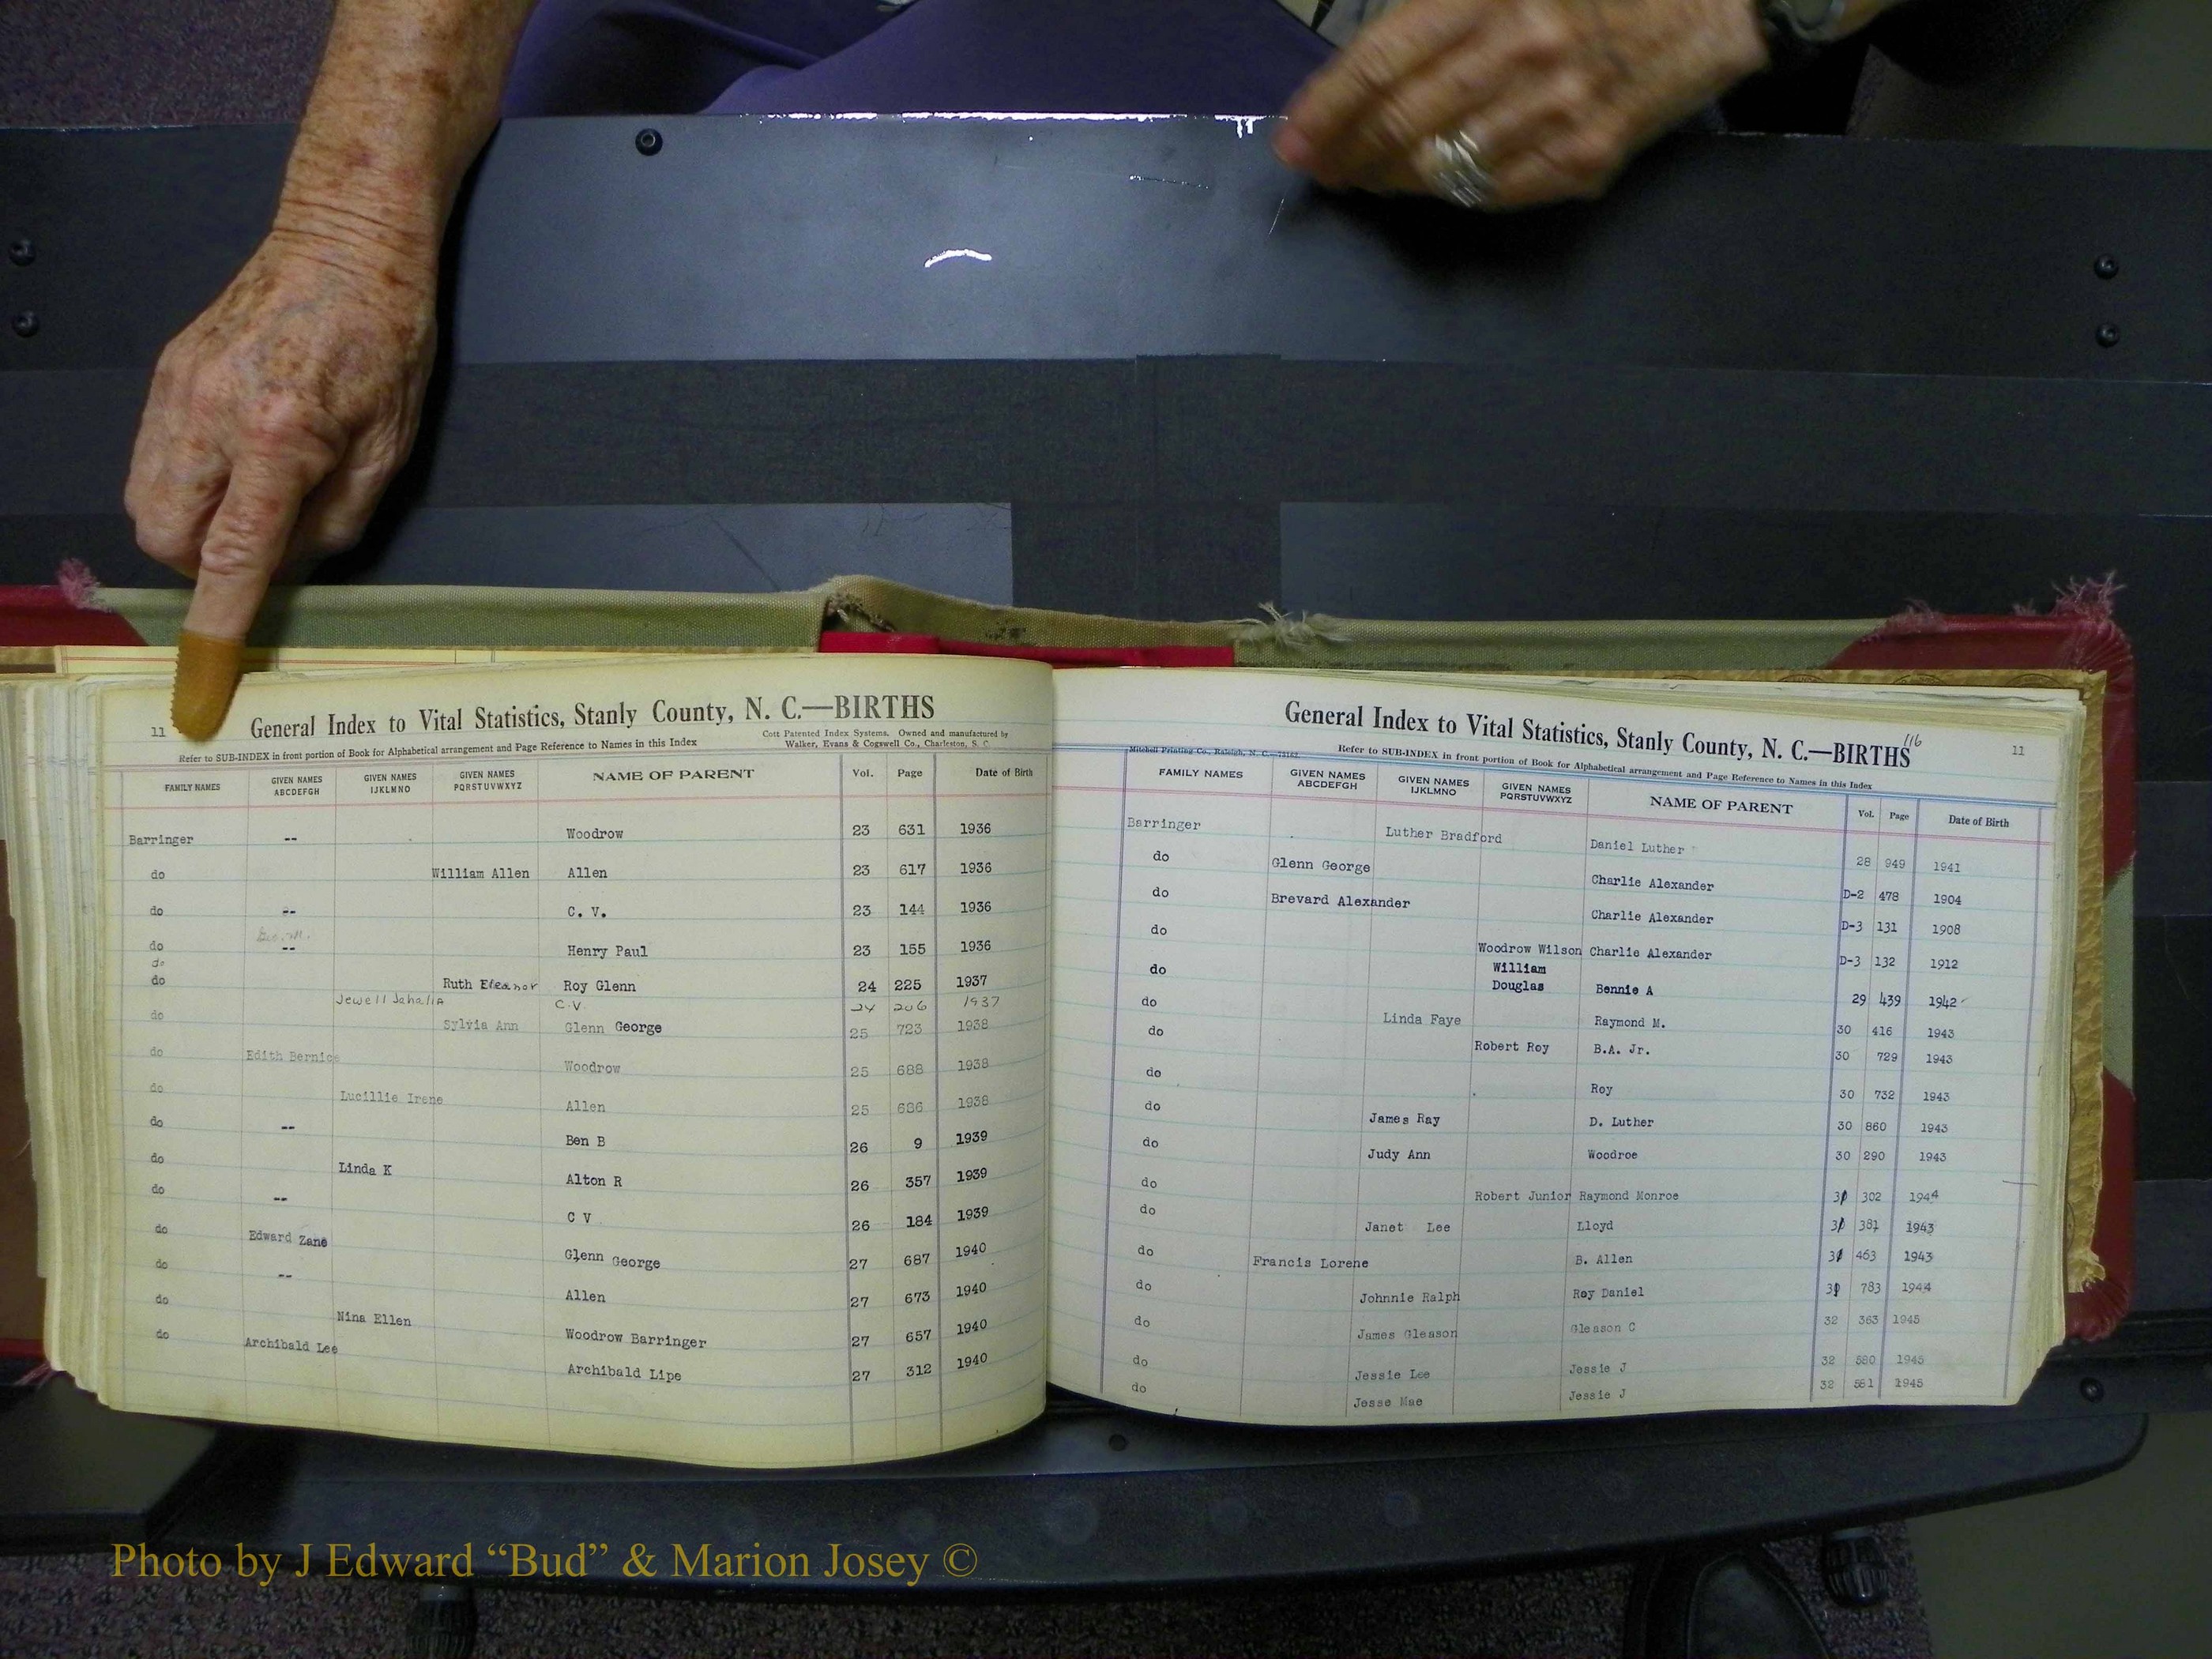 11
General Index to Vital Statistics, Stanly County, N. C.—BIRTHS
Refer to SUB-INDEX in front portion of Book for Alphabetical arrangement and Page Reference to Names in this Index
Cott Patented Index Systems. Owned and manufactured by
Walker, Evans & Cogswell Co., Charleston, S. C.
FAMILY NAMES GIVEN NAMES ABCDEFGH GIVEN NAMES IJKLMNO GIVEN NAMES PQRSTUVWXYZ NAME OF PARENT Vol. Page Date of Birth
Barringer -- Woodrow 23 631 1936
do William Allen Allen 23 617 1936
do -- C. V. 23 144 1936
do -- Henry Paul 23 155 1936
do
do Ruth Eleanor Roy Glenn 24 225 1937
Jewell Jahalia C.V. 24 206 1937
do Sylvia Ann Glenn George 25 723 1938
do Edith Bernice Woodrow 25 688 1938
do Lucillie Irene Allen 25 686 1938
do -- Ben B 26 9 1939
do Linda K Alton R 26 357 1939
do -- C V 26 184 1939
do Edward Zane Glenn George 27 687 1940
do -- Allen 27 673 1940
do Nina Ellen Woodrow Barringer 27 657 1940
do Archibald Lee Archibald Lipe 27 312 1940
General Index to Vital Statistics, Stanly County, N. C.—BIRTHS
116
11
Mitchell Printing Co., Raleigh, N. C.
Refer to SUB-INDEX in front portion of Book for Alphabetical arrangement and Page Reference to Names in this Index
FAMILY NAMES GIVEN NAMES ABCDEFGH GIVEN NAMES IJKLMNO GIVEN NAMES PQRSTUVWXYZ NAME OF PARENT Vol. Page Date of Birth
Barringer Luther Bradford Daniel Luther 28 949 1941
do Glenn George Charlie Alexander D-2 478 1904
do Brevard Alexander Charlie Alexander D-3 131 1908
do Woodrow Wilson Charlie Alexander D-3 132 1912
do William Douglas Bennie A 29 439 1942
do Linda Faye Raymond M. 30 416 1943
do Robert Roy B.A. Jr. 30 729 1943
do Roy 30 732 1943
do James Ray D. Luther 30 860 1943
do Judy Ann Woodroe 30 290 1943
do Robert Junior Raymond Monroe 31 302 1944
do Janet Lee Lloyd 31 381 1943
do Francis Lorene B. Allen 31 463 1943
do Johnnie Ralph Roy Daniel 783 1944
do James Gleason Gleason C 32 363 1945
do Jessie Lee Jessie J 32 580 1945
do Jesse Mae Jessie J 32 581 1945
Photo by J Edward “Bud” & Marion Josey ©